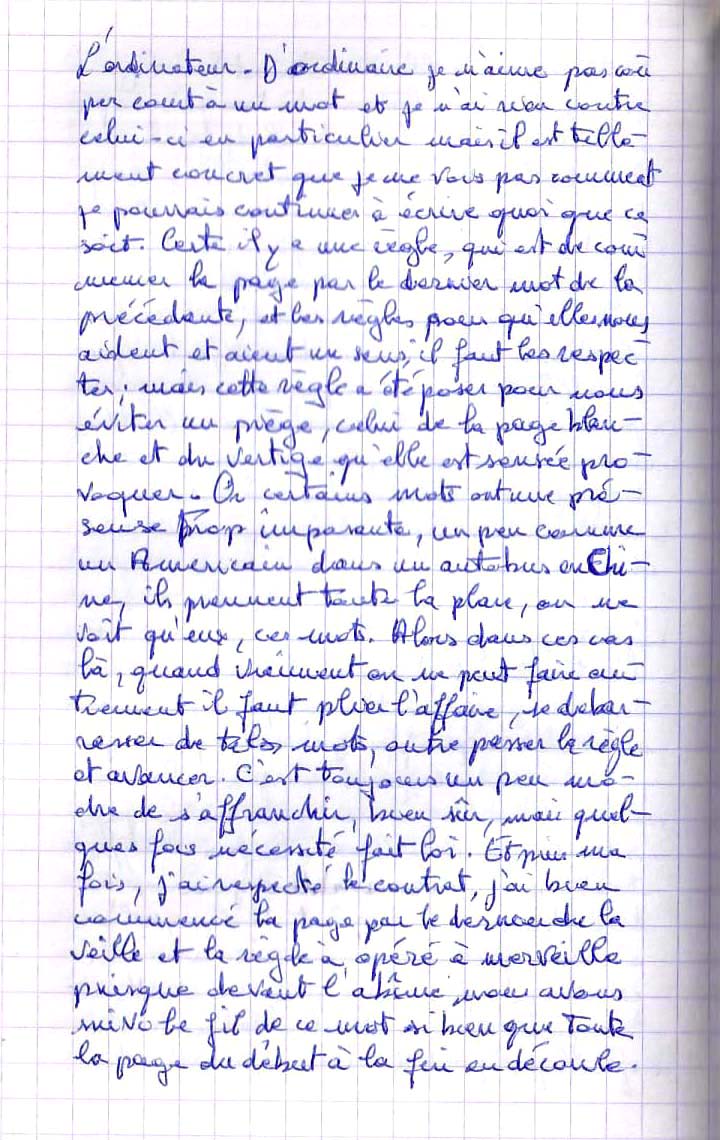 L'ordinateur. D'ordinaire je n'aime pas cou
per court à un mot et je n'ai rien contre
celui-ci en particulier mais il est telle-
ment concret que je ne vois pas comment
je pourrais continuer à écrire quoi que ce
soit. Certe il y a une règle, qui est de com
mencer la page par le dernier mot de la
précédente, et les règles pour qu'elles nous
aident et aient un sens, il faut les respec-
ter ; mais cette règle a été poser pour nous
éviter un piège, celui de la page blan-
che et du vertige qu'elle est sensée pro-
voquer. Or certains mots ont une pré-
sense trop imposante, un peu comme
un Americain dans un autobus en Chi-
ne, ils prennent toute la place, on ne
voit qu'eux, ces mots. Alors dans ces cas
là, quand vraiment on ne peut faire au
trement il faut plier l'affaire, se debar-
rasser de tels mots, outre passer la règle
et avancer. C'est toujours un peu mo-
che de s'affranchir, bien sûr, mais quel-
ques fois nécessité fait loi. Et puis ma
fois, j'ai respecté le contrat, j'ai bien
commencé la page par le dernier de la
veille et la règle à opéré à merveille
puisque devant l'abîme nous avons
suivi le fil de ce mot si bien que toute
la page du début à la fin en découle.